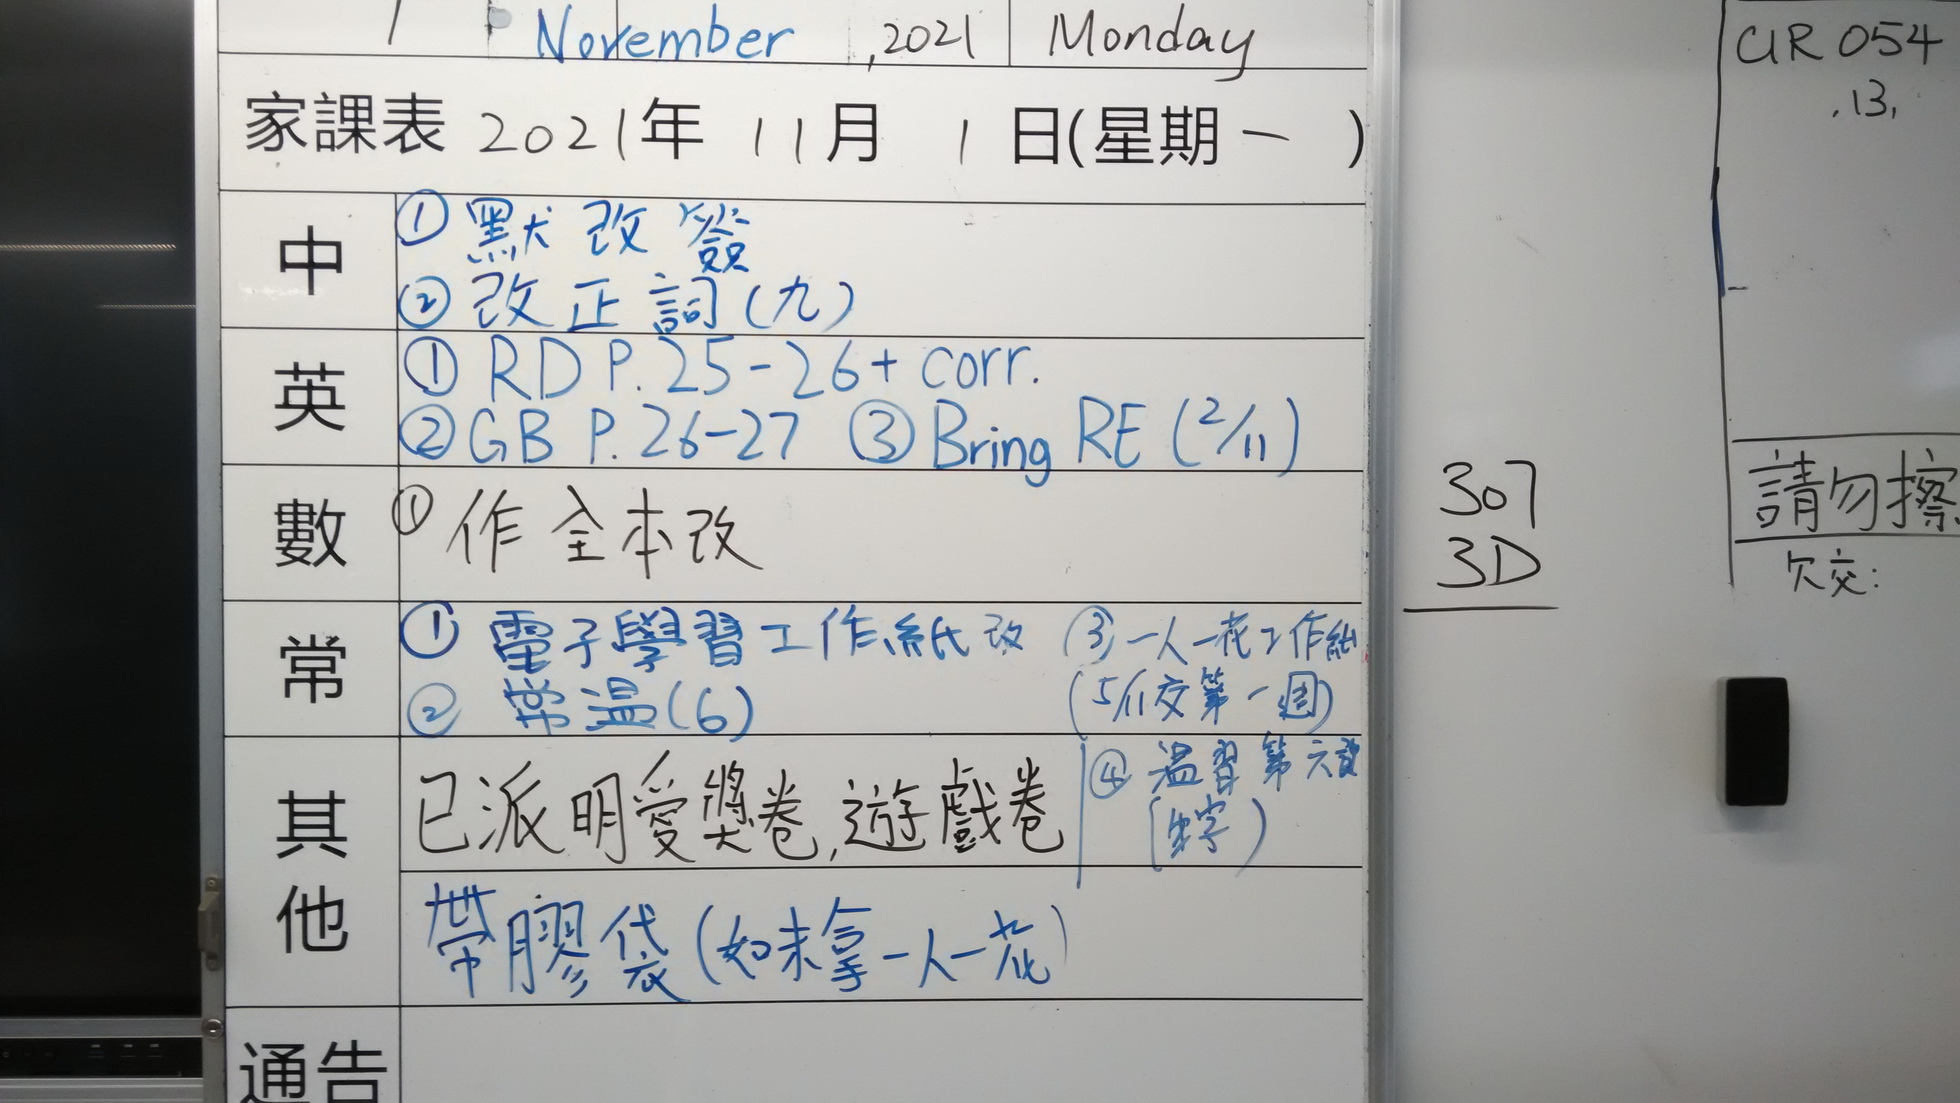 1 November, 2021 Monday
家課表 2021年 11月 1日(星期一 )
中
① 默改簽
② 改正詞(九)
英
① RD P.25-26+ corr.
② GB P.26-27 ③ Bring RE (2/11)
數
① 作全本改
常
① 電子學習工作紙改
② 常温(6)
③ 一人一花工作紙
(5/11交第一週)
④ 温習第六課
其他
已派明愛獎卷,遊戲卷
帶膠袋(如未拿一人一花)
通告
307
3D
CIR 054
.13,
請勿擦
欠交: